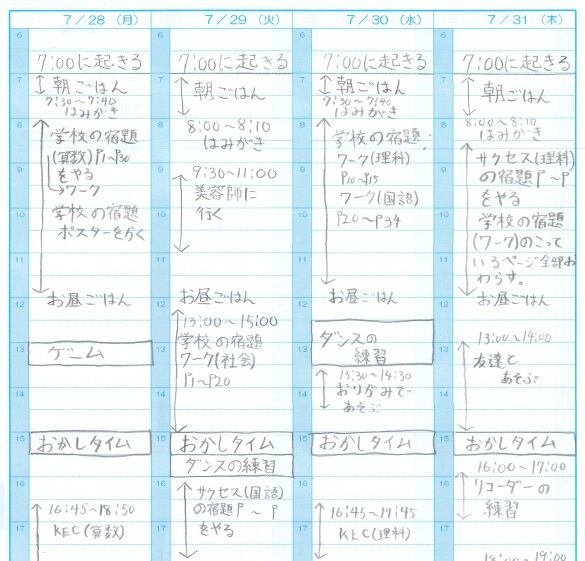 7/28（月）
7/29（火）
7/30（水）
7/31（木）
6
7:00に起きる
7
朝ごはん
7:30~7:40
はみがき
8
学校の宿題
(算数)P1~P30
をやる
→ワーク
9
学校の宿題
ポスターをかく
10
11
お昼ごはん
12
13
ゲーム
14
15
おかしタイム
16
16:45~18:50
KEC(算数)
17
6
7:00に起きる
7
朝ごはん
8:00~8:10
はみがき
8
9
9:30~11:00
美容師に
行く
10
11
お昼ごはん
12
13:00~15:00
学校の宿題
ワーク(社会)
P1~P20
13
14
15
おかしタイム
ダンスの練習
16
サクセス(国語)
の宿題P~P
をやる
17
6
7:00に起きる
7
朝ごはん
7:30~7:40
はみがき
8
学校の宿題
ワーク(理科)
P10~P15
ワーク(国語)
P20~P34
9
10
11
お昼ごはん
12
ダンスの
練習
13
13:30~14:30
おりがみで
あそぶ
14
15
おかしタイム
16
16:45~19:45
KEC(理科)
17
6
7:00に起きる
7
朝ごはん
8:00~8:10
はみがき
8
サクセス(理科)
の宿題P~P
をやる
9
学校の宿題
(ワーク)のこって
いるページ全部お
わらす。
10
11
お昼ごはん
12
13:00~14:00
友達と
あそぶ
13
14
15
おかしタイム
16:00~17:00
リコーダーの
練習
16
17
18:00~19:00